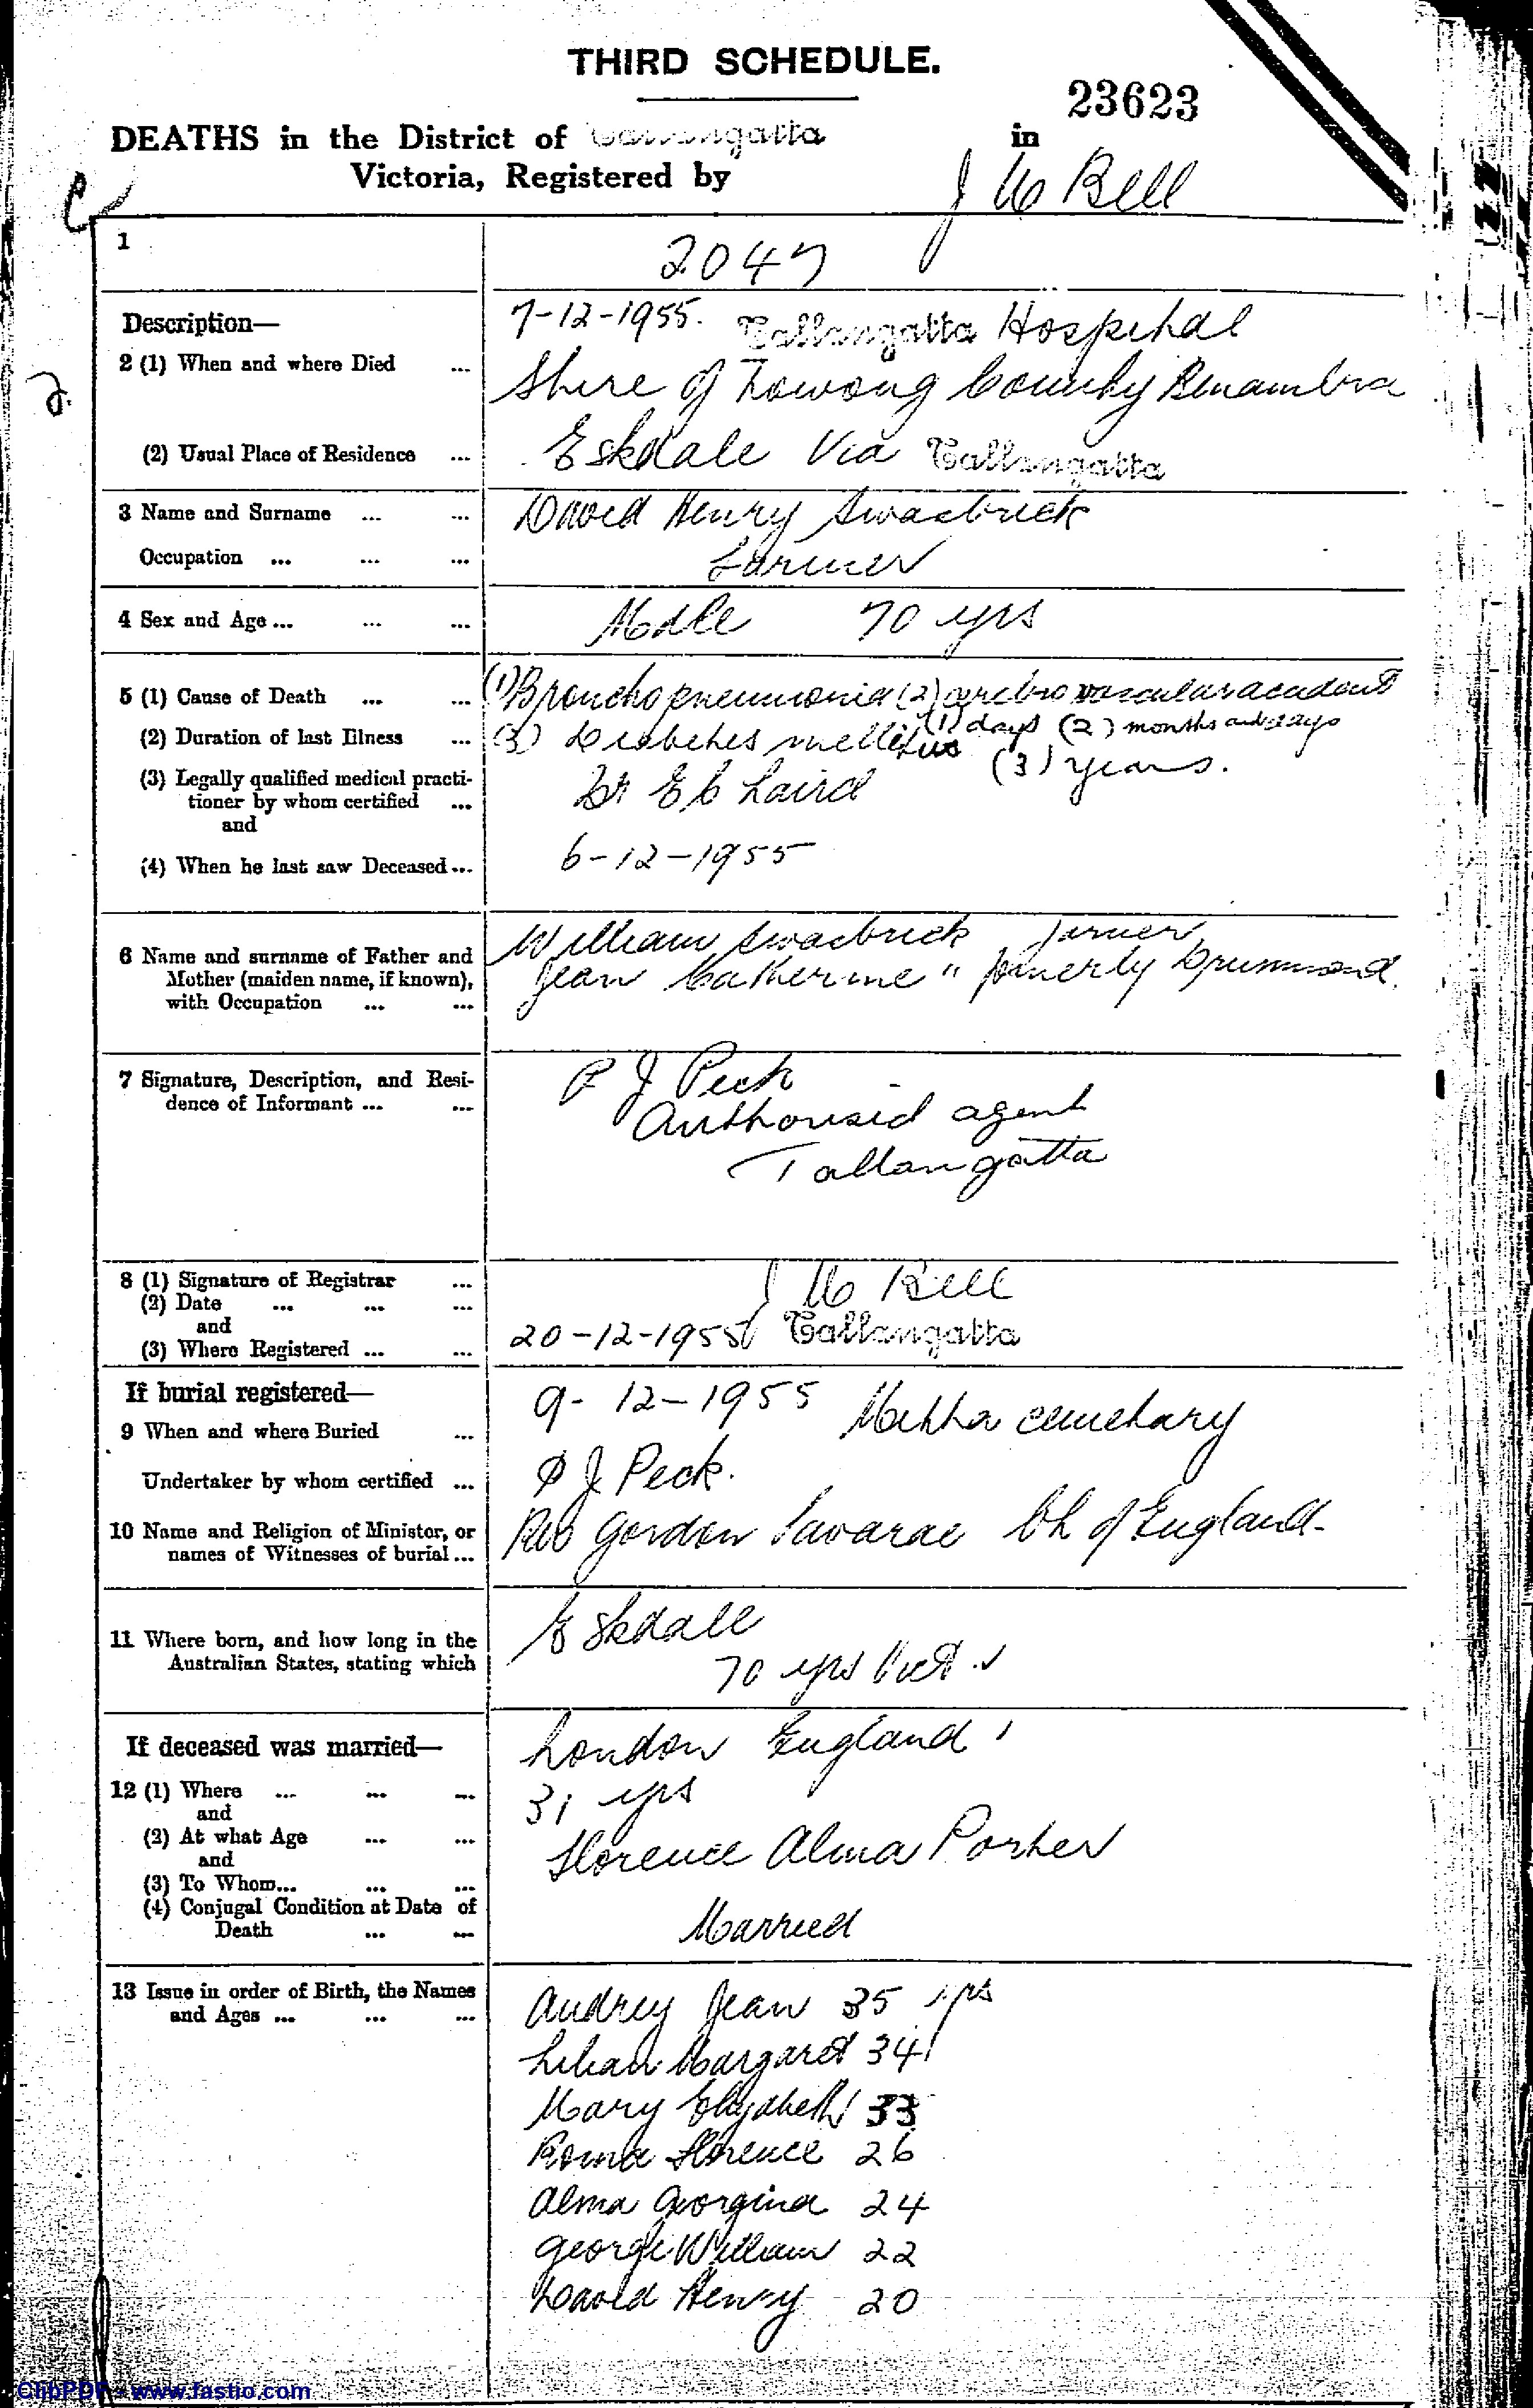 THIRD SCHEDULE.
23623
DEATHS in the District of Tallangatta in
Victoria, Registered by J Bell
1 2047
Description—
2 (1) When and where Died ... 7-12-1955. Tallangatta Hospital
Shire of Towong County Benambra
(2) Usual Place of Residence ... Eskdale Via Tallangatta
3 Name and Surname ... ... David Henry Swasbrick
Occupation ... ... ... Farmer
4 Sex and Age ... ... ... Male 70 yrs
5 (1) Cause of Death ... ... (1) Bronchopneumonia (2) cerebro vascular accident
(2) Duration of last Illness ... (3) Diabetes mellitus (1) days (2) months and days
(3) years.
(3) Legally qualified medical practi-
tioner by whom certified ... Dr E C Laird
and
(4) When he last saw Deceased ... 6-12-1955
6 Name and surname of Father and William Swasbrick farmer
Mother (maiden name, if known), Jean Catherine " formerly Drummond.
with Occupation ... ...
7 Signature, Description, and Resi- P J Peck
dence of Informant ... ... Authorised agent
Tallangatta
8 (1) Signature of Registrar ... J Bell
(2) Date ... ... ...
and
(3) Where Registered ... ... 20-12-1955 Tallangatta
If burial registered—
9 When and where Buried ... 9-12-1955 cemetary
Undertaker by whom certified ... P J Peck.
10 Name and Religion of Minister, or Rev Gordon Ch of England.
names of Witnesses of burial ...
11 Where born, and how long in the Eskdale
Australian States, stating which 70 yrs Vict.
If deceased was married— London England
12 (1) Where ... ... ... 31 yrs
and
(2) At what Age ... ...
and
(3) To Whom... ... ... Florence Alma Porter
(4) Conjugal Condition at Date of
Death ... ... Married
13 Issue in order of Birth, the Names Audrey Jean 35 yrs
and Ages ... ... ... Lilian Margaret 34
Mary Elizabeth 33
Roma Florence 26
Alma Georgina 24
George William 22
David Henry 20
ClibPDF - www.fastio.com